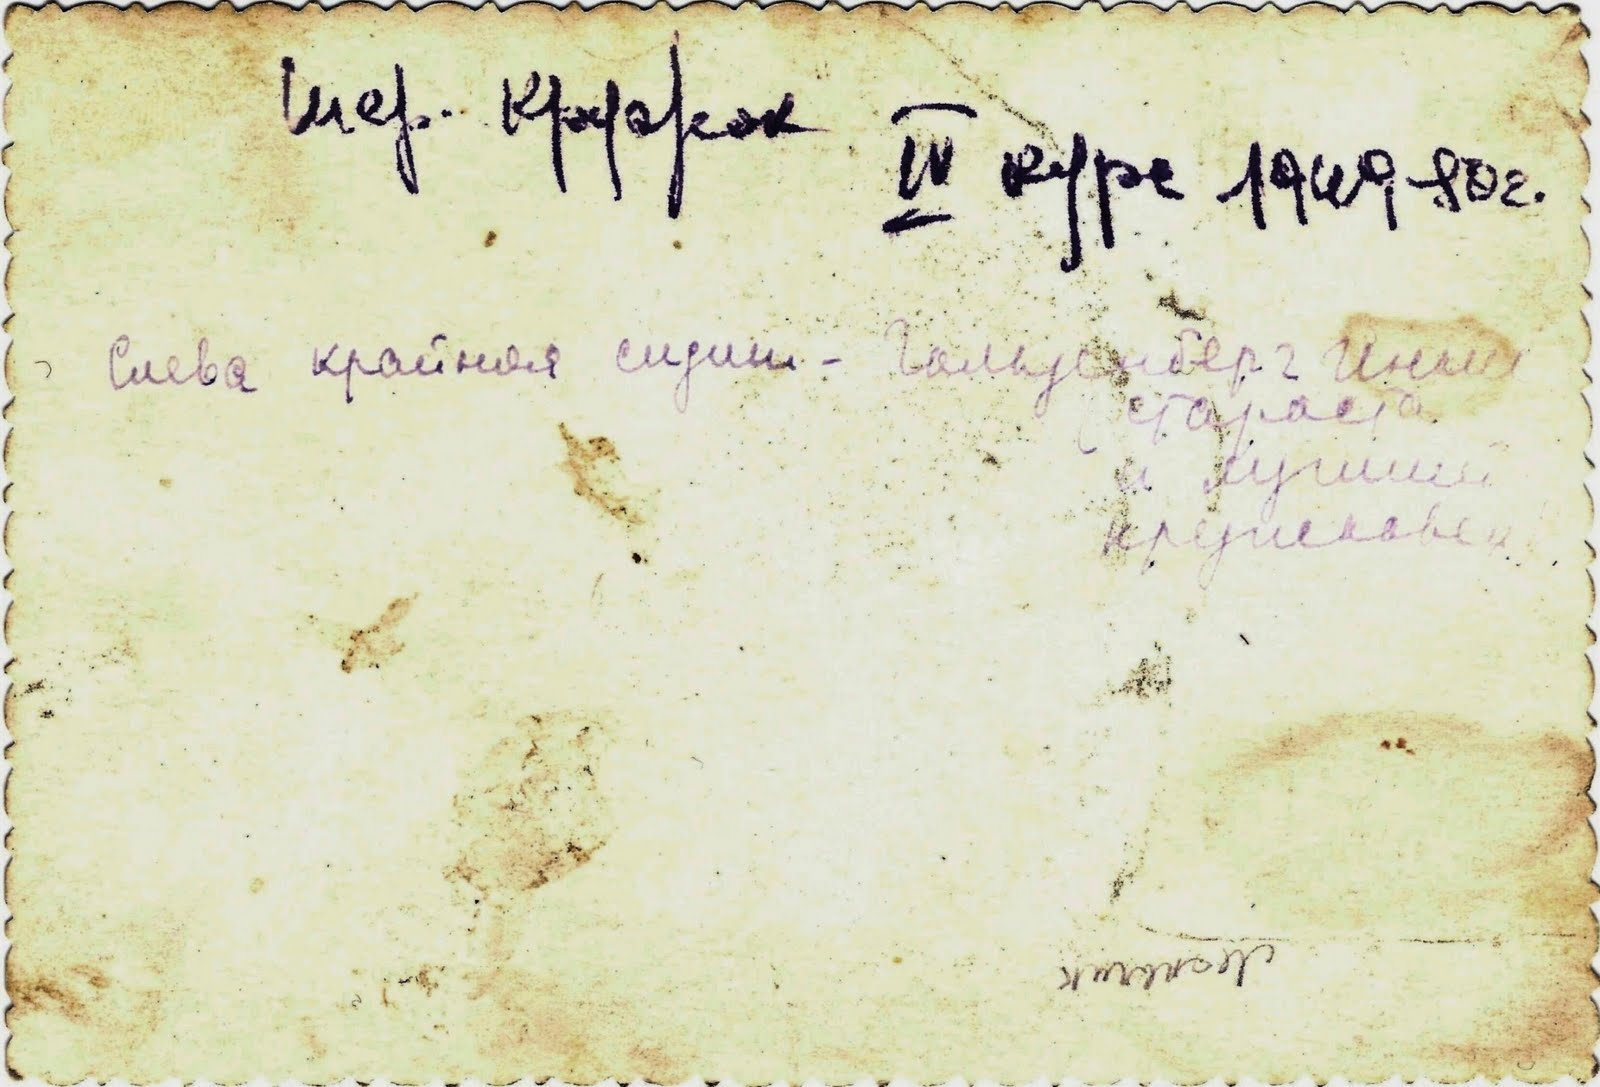 Шер. кружок
IV курс 1949-50г.
Слева крайняя сидит - Гольденберг Инна
(староста
и лучший
кружковец)